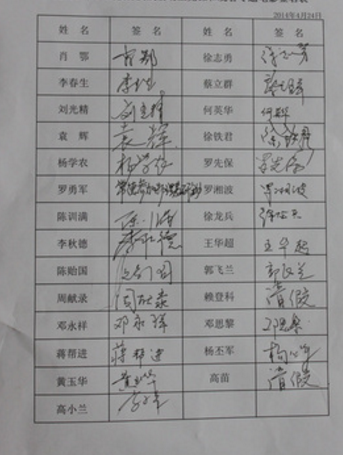 2014年4月24日
姓 名 签 名 姓 名 签 名
肖 鄂 肖鄂 徐志勇 徐志勇
李春生 李春生 蔡立群 蔡立群
刘光精 刘光精 何英华
袁 辉 袁辉 徐铁君 徐铁君
杨学农 杨学农 罗先保 罗先保
罗勇军 罗湘波 罗湘波
陈训满 徐龙兵
李秋德 李秋德 王华超 王华超
陈贻国 郭飞兰
周献录 周献录 赖登科 请假
邓永祥 邓永祥 邓思黎
蒋帮进 蒋帮进 杨丕军
黄玉华 黄玉华 高苗 请假
高小兰